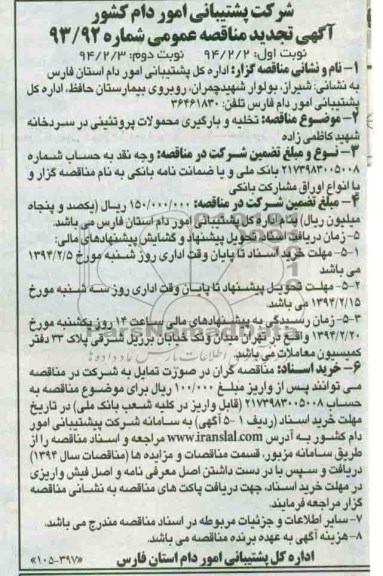 شرکت پشتیبانی امور دام کشور
آگهی تجدید مناقصه عمومی شماره ۹۳/۹۲
نوبت اول: ۹۴/۲/۲ نوبت دوم: ۹۴/۲/۳
۱- نام و نشانی مناقصه گزار: اداره کل پشتیبانی امور دام استان فارس
به نشانی: شیراز، بولوار شهیدچمران، روبروی بیمارستان حافظ، اداره کل
پشتیبانی امور دام فارس تلفن: ۳۶۴۶۱۸۳۰
۲- موضوع مناقصه: تخلیه و بارگیری محمولات پروتئینی در سردخانه
شهید کاظمی زاده
۳- نوع و مبلغ تضمین شرکت در مناقصه: وجه نقد به حساب شماره
۲۱۷۳۹۸۳۰۰۵۰۰۸ بانک ملی و یا ضمانت نامه بانکی به نام مناقصه گزار و
یا انواع اوراق مشارکت بانکی
۴- مبلغ تضمین شرکت در مناقصه: ۱۵۰/۰۰۰/۰۰۰ ریال (یکصد و پنجاه
میلیون ریال) بنام اداره کل پشتیبانی امور دام استان فارس می باشد.
۵- زمان دریافت اسناد، تحویل پیشنهاد و گشایش پیشنهادهای مالی:
۵-۱- مهلت خرید اسناد تا پایان وقت اداری روز شنبه مورخ ۱۳۹۴/۲/۵
می باشد
۵-۲- مهلت تحویل پیشنهاد تا پایان وقت اداری روز سه شنبه مورخ
۱۳۹۴/۲/۱۵ می باشد.
۵-۳- زمان رسیدگی به پیشنهادهای مالی ساعت ۱۴ روز یکشنبه مورخ
۱۳۹۴/۲/۲۰ واقع در تهران میدان ونک خیابان برزیل شرقی پلاک ۳۳ دفتر
کمیسیون معاملات می باشد.
۶- خرید اسناد: مناقصه گران در صورت تمایل به شرکت در مناقصه
می توانند پس از واریز مبلغ ۱۰۰/۰۰۰ ریال برای موضوع مناقصه به
حساب ۲۱۷۳۹۸۳۰۰۵۰۰۸ (قابل واریز در کلیه شعب بانک ملی) در تاریخ
مهلت خرید اسناد (ردیف ۱-۵ آگهی) به سامانه شرکت پشتیبانی امور
دام کشور به آدرس www.iranslal.com مراجعه و اسناد مناقصه را از
طریق سامانه مزبور، قسمت مناقصات و مزایده ها (مناقصات سال ۱۳۹۴)
دریافت و سپس با در دست داشتن اصل معرفی نامه و اصل فیش واریزی
در مهلت خرید اسناد، جهت دریافت پاکت های مناقصه به نشانی مناقصه
گزار مراجعه فرمایند.
۷- سایر اطلاعات و جزئیات مربوطه در اسناد مناقصه مندرج می باشد.
۸- هزینه آگهی به عهده برنده مناقصه می باشد.
اداره کل پشتیبانی امور دام استان فارس
«۱۰۵-۳۹۷»